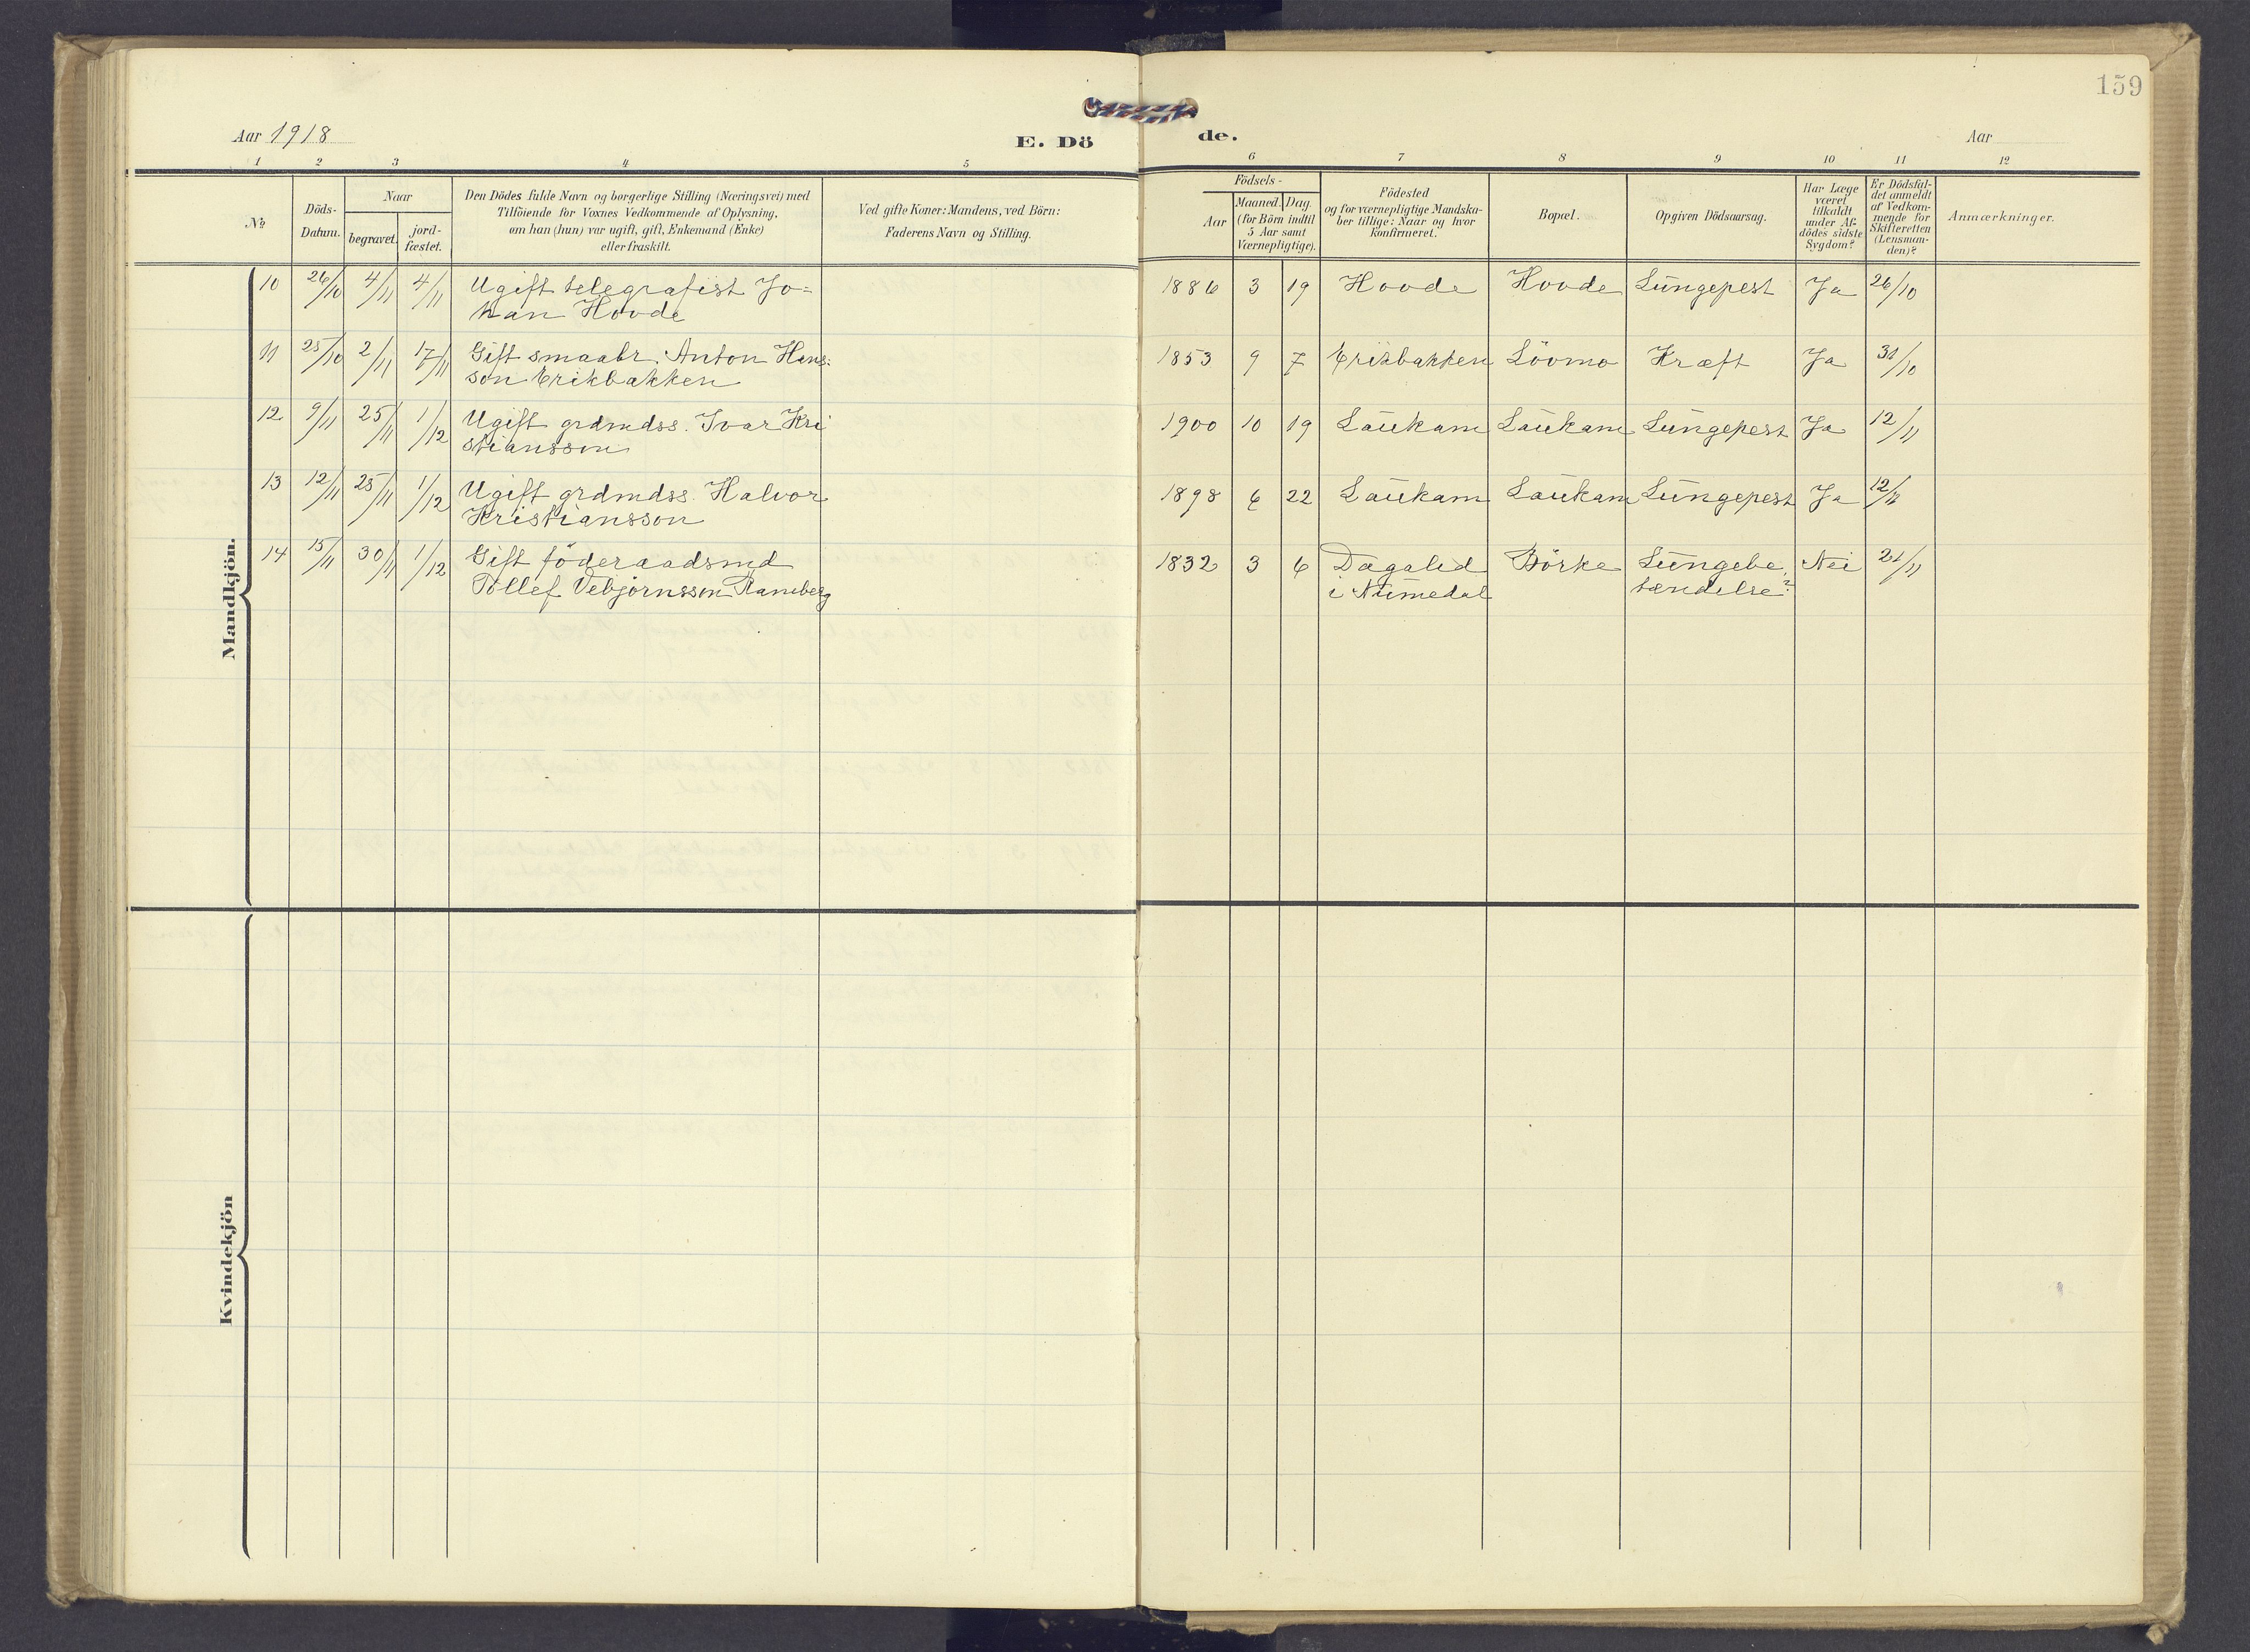 159
Aar 1918
E. Dö
de.
Aar
1 2 3 4 5 6 7 8 9 10 11 12
No
Döds-
Datum.
Naar
begravet.
jord-
fæstet.
Den Dödes fulde Navn og borgerlige Stilling (Næringsvei) med
Tilföiende for Voxnes Vedkommende af Oplysning,
om han (hun) var ugift, gift, Enkemand (Enke)
eller fraskilt.
Ved gifte Koner: Mandens, ved Börn:
Faderens Navn og Stilling.
Födsels-
Aar
Maaned. Dag.
(for Börn indtil
5 Aar samt
Værnepligtige).
Födested
og for værnepligtige Mandska-
ber tillige: Naar og hvor
konfirmeret.
Bopæl.
Opgiven Dödsaarsag.
Har Læge
været
tilkaldt
under Af-
dödes sidste
Sygdom?
Er Dödsfal-
det anmeldt
af Vedkom-
mende for
Skifteretten
(Lensman-
den)?
Anmærkninger.
Mandkjön.
10 26/10 4/11 4/11 Ugift telegrafist Jo= 1886 3 19 Hovde Hovde Lungepest Ja 26/10
han Hovde
11 25/10 2/11 17/11 Gift smaabr. Anton Hans= 1853 9 7 Erikbakken Lövmo Kræft Ja 31/10
son Erikbakken
12 9/11 25/11 1/12 Ugift grdmdss. Ivar Kri 1900 10 19 Laukam Laukam Lungepest Ja 12/11
stiansson
13 12/11 25/11 1/12 Ugift grdmdss. Halvor 1898 6 22 Laukam Laukam Lungepest Ja 12/11
Kristiansson
14 15/11 30/11 1/12 Gift föderaadsmd 1832 3 6 Dagalid Börke Lungebe Nei 21/11
Tollef Vebjörnsson Ramberg i Numedal tændelse?
Kvindekjön